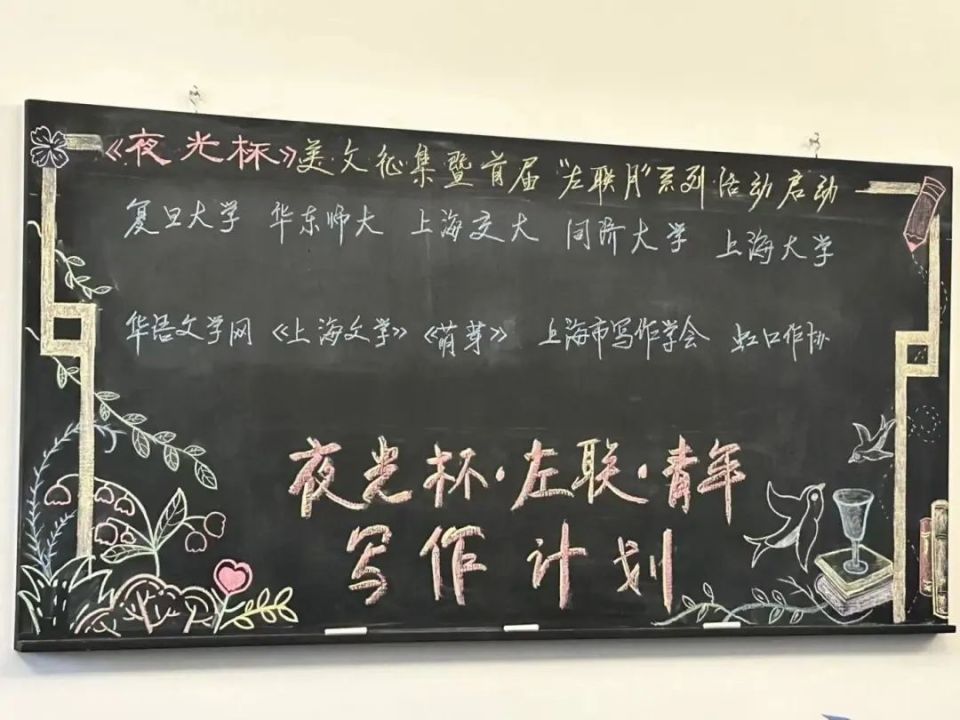 《夜光杯》美文征集暨首届“左联月”系列活动启动
复旦大学 华东师大 上海交大 同济大学 上海大学
华语文学网 《上海文学》《萌芽》 上海市写作学会 虹口作协
夜光杯·左联·青年
写作计划